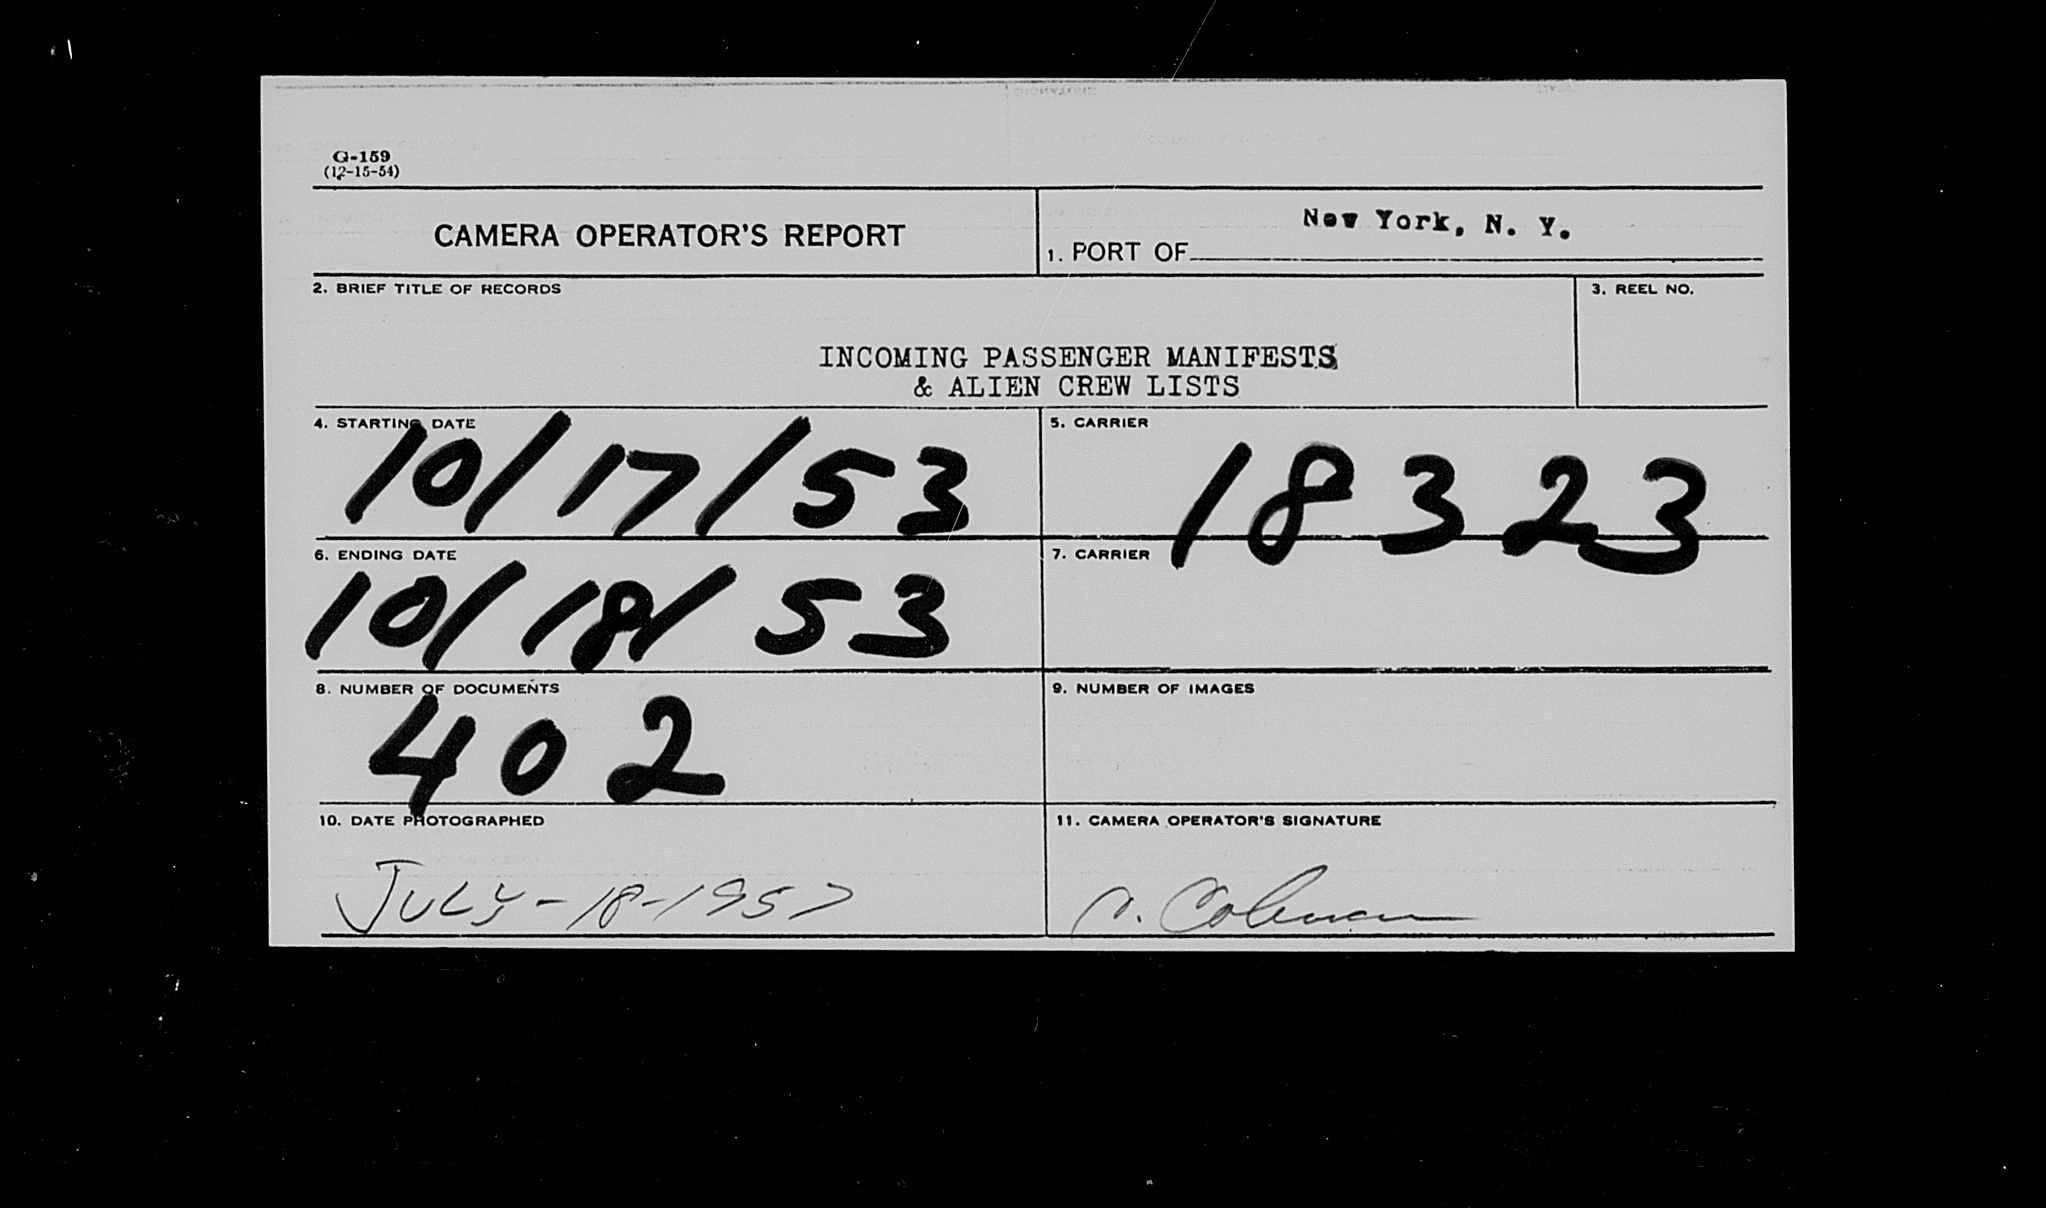 G-159
(12-15-54)
CAMERA OPERATOR'S REPORT
New York, N. Y.
1. PORT OF
2. BRIEF TITLE OF RECORDS
3. REEL NO.
INCOMING PASSENGER MANIFESTS
& ALIEN CREW LISTS
4. STARTING DATE
10/17/53
5. CARRIER
18323
6. ENDING DATE
10/18/53
7. CARRIER
8. NUMBER OF DOCUMENTS
402
9. NUMBER OF IMAGES
10. DATE PHOTOGRAPHED
JULY-18-1957
11. CAMERA OPERATOR'S SIGNATURE
Coleman